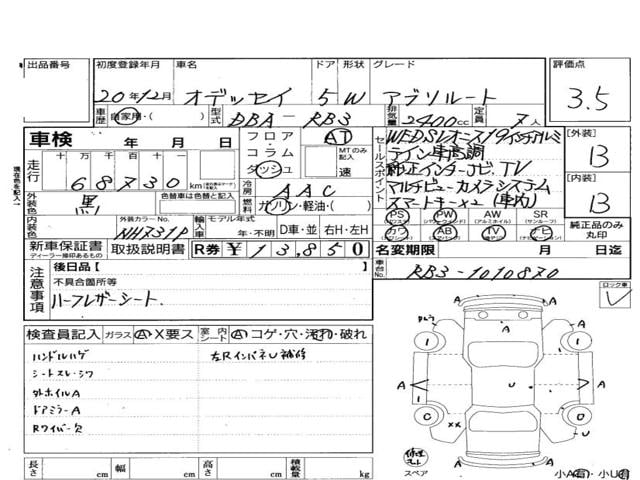 出品番号 初度登録年月 車名 ドア 形状 グレード 評価点
20年12月 オデッセイ 5 W アブソルート 3.5
車歴 自家用・( ) 型式 DBA-RB3 排気量 2400cc 定員 7人
車検 年 月 日 フロア・コラム ダッシュ AT MTのみ記入 速
走行 十万千百十 68730 km
現在色を記入
外装色 黒 色替車は色替と記入 冷房 AAC
燃料 ガソリン・軽油・( )
内装色 外装カラーNo. NH731P 輸入車 モデル年式 年・不明 D車・並 右H・左H
セールスポイント
WEDSレオニス19インチアルミ
テイン車高調
純正インターナビ、TV
マルチビューカメラシステム
スマートキー×2(車内)
[外装] B
[内装] B
PS (パワステ) PW (パワーウインド) AW (アルミホイル) SR (サンルーフ)
カワ AB (エアバッグ) TV ナビ
純正品のみ丸印
新車保証書 ディーラー捺印あるもの 取扱説明書 R券 ¥13,850
名変期限 月 日迄
車台No. RB3-1010870
注意事項 後日品[ ]
不具合箇所等
ハーフレザーシート.
ロック車
検査員記入 ガラス A・X要ス 室内 シート A コゲ・穴・汚れ・破れ
ハンドルハゲ 左RインパネU補修
シートスレ・シワ
外ホイルA
ドアミラーA
Rワイパー欠
1 A 1
A 1 U 1 A
C XX A
U
スペア
小A有・小U有
長さ cm 幅 cm 高さ cm 積載量 kg